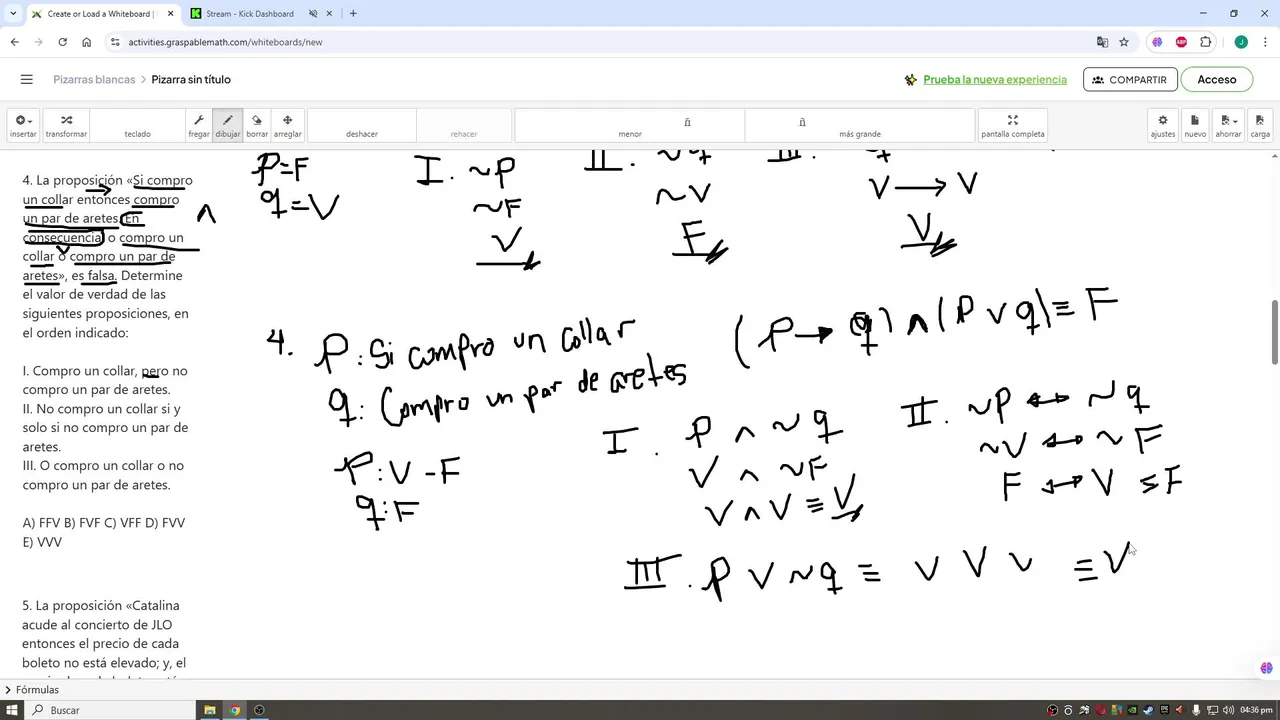 Create or Load a Whiteboard |
Stream - Kick Dashboard
activities.graspablemath.com/whiteboards/new
Pizarras blancas > Pizarra sin título
Prueba la nueva experiencia
COMPARTIR
Acceso
insertar transformar teclado fregar dibujar borrar arreglar deshacer rehacer menor más grande pantalla completa ajustes nuevo ahorrar carga
4. La proposición «Si compro
un collar entonces compro
un par de aretes. En
consecuencia, o compro un
collar o compro un par de
aretes», es falsa. Determine
el valor de verdad de las
siguientes proposiciones, en
el orden indicado:
I. Compro un collar, pero no
compro un par de aretes.
II. No compro un collar si y
solo si no compro un par de
aretes.
III. O compro un collar o no
compro un par de aretes.
A) FFV B) FVF C) VFF D) FVV
E) VVV
5. La proposición «Catalina
acude al concierto de JLO
entonces el precio de cada
boleto no está elevado; y, el
→
∧
v
P=F
q=V
I. ~P
~F
V
II. ~q
~V
F
III.
V → V
V
4. P: Si compro un collar
q: Compro un par de aretes
P: V - F
q: F
(P → q) ∧ (P ∨ q) ≡ F
I. P ∧ ~q
V ∧ ~F
V ∧ V ≡ V
II. ~P ↔ ~q
~V ↔ ~F
F ↔ V ≤ F
III. P ∨ ~q ≡ V V V ≡ V
Fórmulas
Buscar
04:36 pm